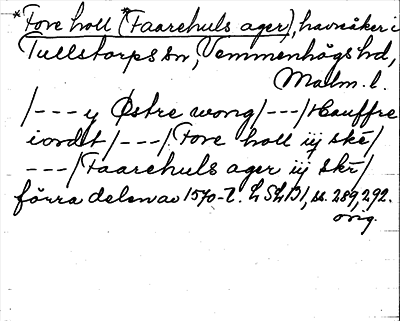 *Fore holl (*Faarehuls ager), havreåker i
Tullstorps sn, Vemmenhögs hd,
Malm. l.
/---y Østre wong/---/Hauffre
iordt/---/Fore holl iij skr/
---/Faarehuls ager iij skr/
förra delen av 1570-t. LSLB1, ss. 289, 292.
orig.